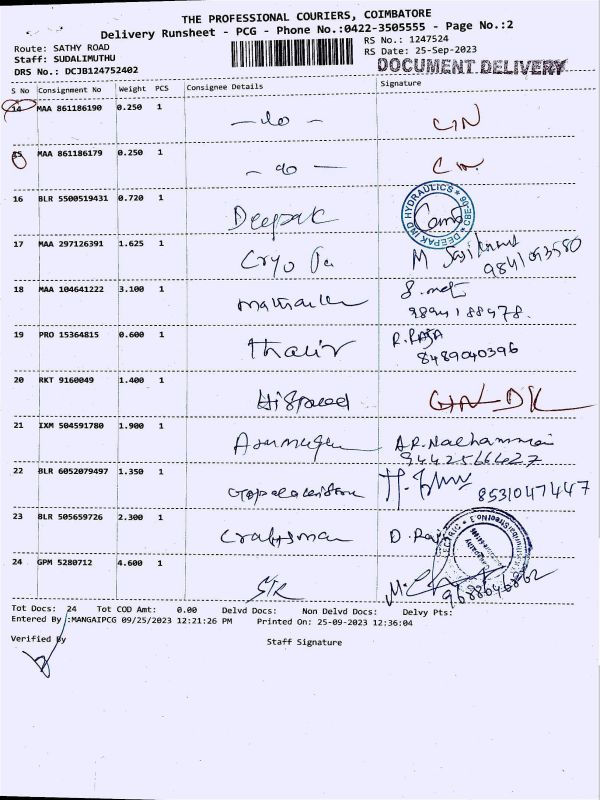 THE PROFESSIONAL COURIERS, COIMBATORE
Delivery Runsheet - PCG - Phone No.:0422-3505555 - Page No.:2
Route: SATHY ROAD
Staff: SUDALIMUTHU
DRS No.: DCJB124752402
RS No.: 1247524
RS Date: 25-Sep-2023
DOCUMENT DELIVERY
S No Consignment No Weight PCS Consignee Details Signature
14 MAA 861186190 0.250 1 - do -
15 MAA 861186179 0.250 1 - do -
16 BLR 5500519431 0.720 1 Deepak
DEEPAK IND HYDRAULICS
17 MAA 297126391 1.625 1 Cryo
9841093580
18 MAA 104641222 3.100 1
9894188978.
19 PRO 15364815 0.600 1 Thalir R. RAJA
8489040396
20 RKT 9160049 1.400 1
21 IXM 504591780 1.900 1 A.R. Nachammai
9442566627
22 BLR 6052079497 1.350 1 Gopalakrishna
8531047447
23 BLR 505659726 2.300 1 Craftsman D. Raj
24 GPM 5280712 4.600 1 STR
9688646862
Tot Docs: 24 Tot COD Amt: 0.00 Delvd Docs: Non Delvd Docs: Delvy Pts:
Entered By :MANGAIPCG 09/25/2023 12:21:26 PM Printed On: 25-09-2023 12:36:04
Verified By Staff Signature